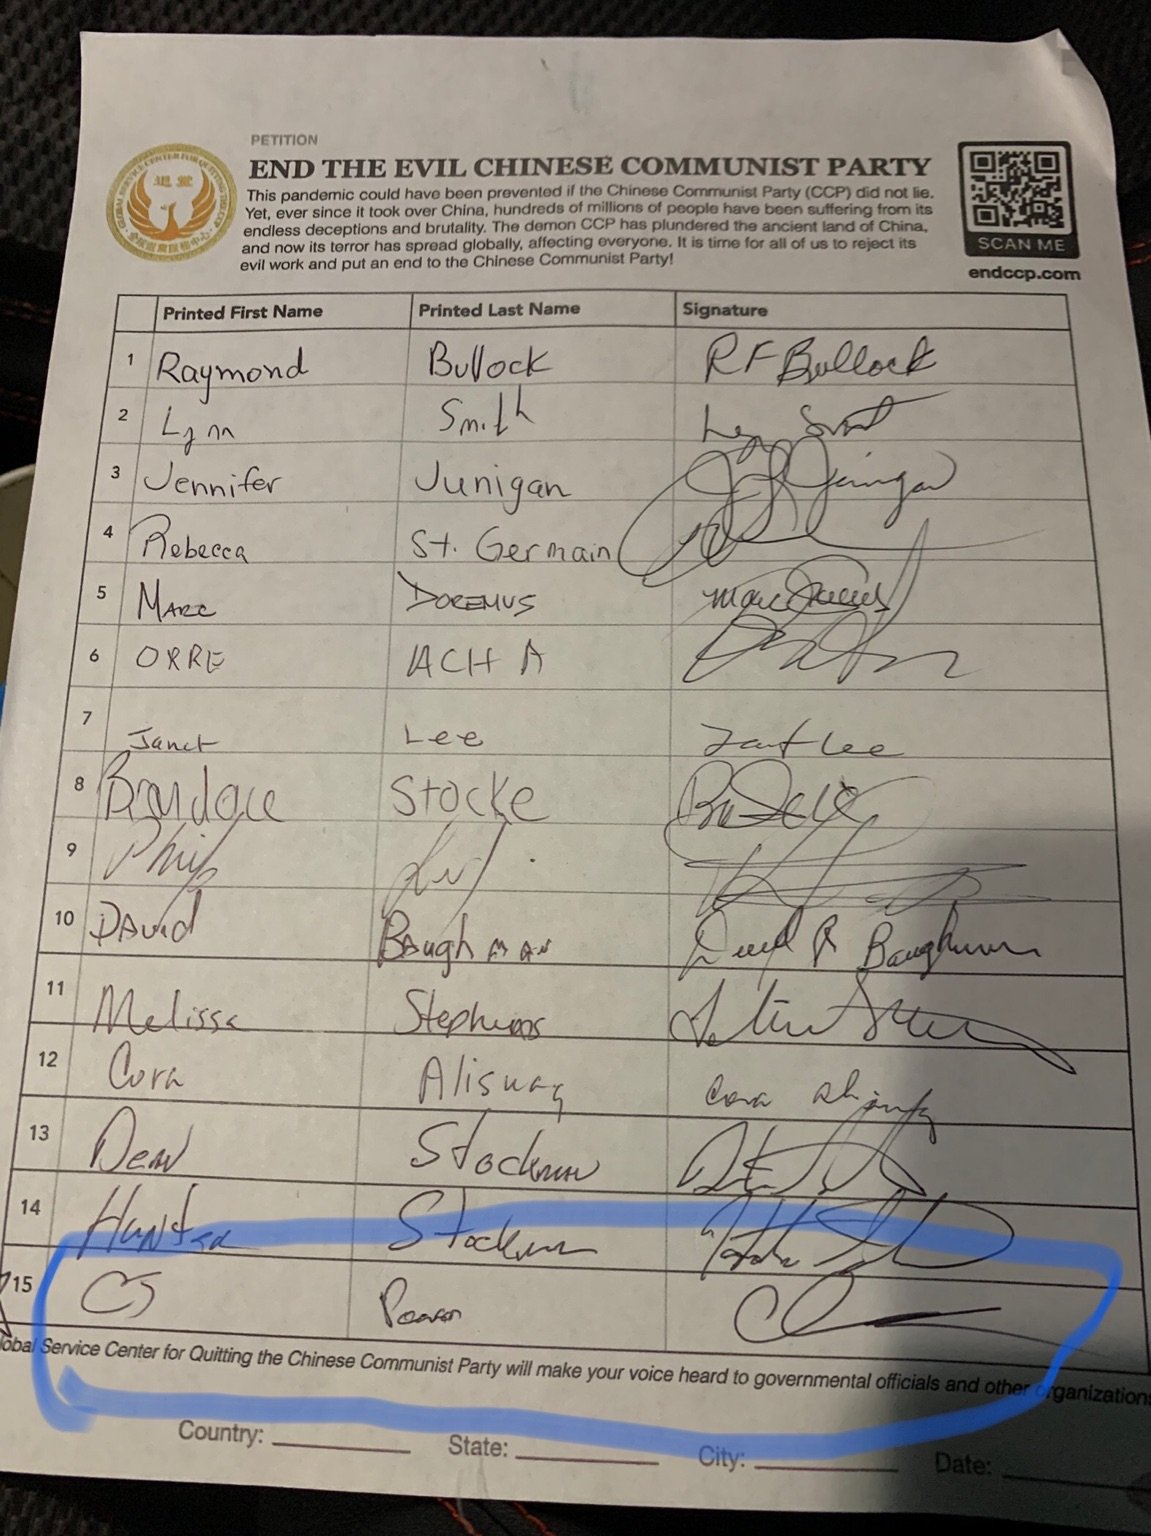 PETITION
END THE EVIL CHINESE COMMUNIST PARTY
This pandemic could have been prevented if the Chinese Communist Party (CCP) did not lie.
Yet, ever since it took over China, hundreds of millions of people have been suffering from its
endless deceptions and brutality. The demon CCP has plundered the ancient land of China,
and now its terror has spread globally, affecting everyone. It is time for all of us to reject its
evil work and put an end to the Chinese Communist Party!
SCAN ME
endccp.com
Printed First Name Printed Last Name Signature
1 Raymond Bullock RF Bullock
2 Lynn Smith
3 Jennifer Junigan
4 Rebecca St. Germain
5 MARC DOREMUS
6 ORRE ACHA
7 Janet Lee Janet Lee
8 Stocke
9 Philip
10 DAVID BAUGHMAN David R Baughman
11 Melissa Stephens
12 Cora
13 Dean Stockman
14 Hunter Stockman
15 CJ Pearson
lobal Service Center for Quitting the Chinese Communist Party will make your voice heard to governmental officials and other organization
Country: State: City: Date: